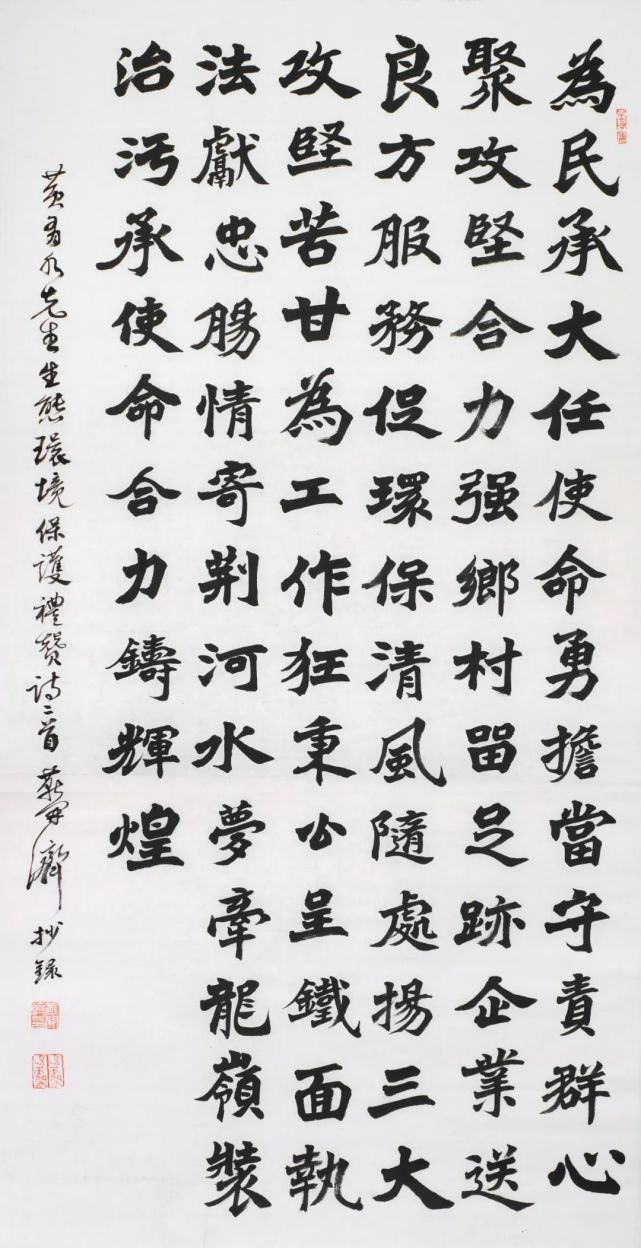 為民承大任使命勇擔當守責群心
聚攻堅合力强鄉村留足跡企業送
良方服務促環保清風隨處揚三大
攻堅苦甘為工作狂秉公呈鐵面執
法獻忠腸情寄荆河水夢牽龍嶺裝
治污承使命合力鑄輝煌
先生生態環境保護禮贊詩二首 抄録